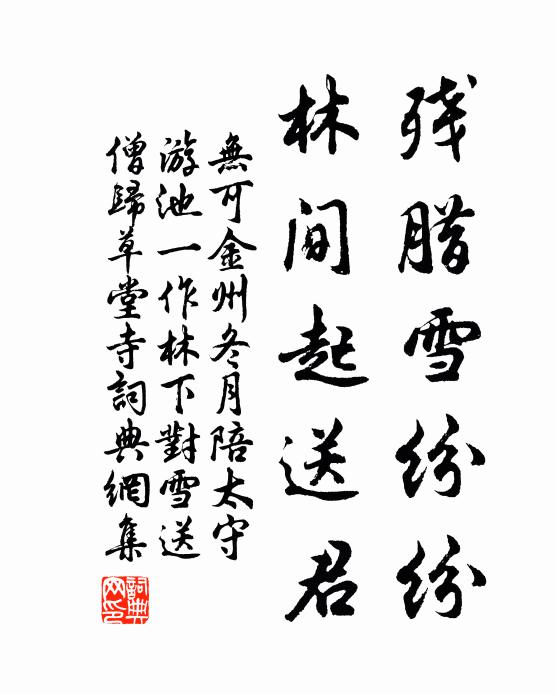 残腊雪纷纷
林间起送君
無可金州冬月陪太守
游池一作林下對雪送
僧歸草堂寺詞典網集
詞典
网印